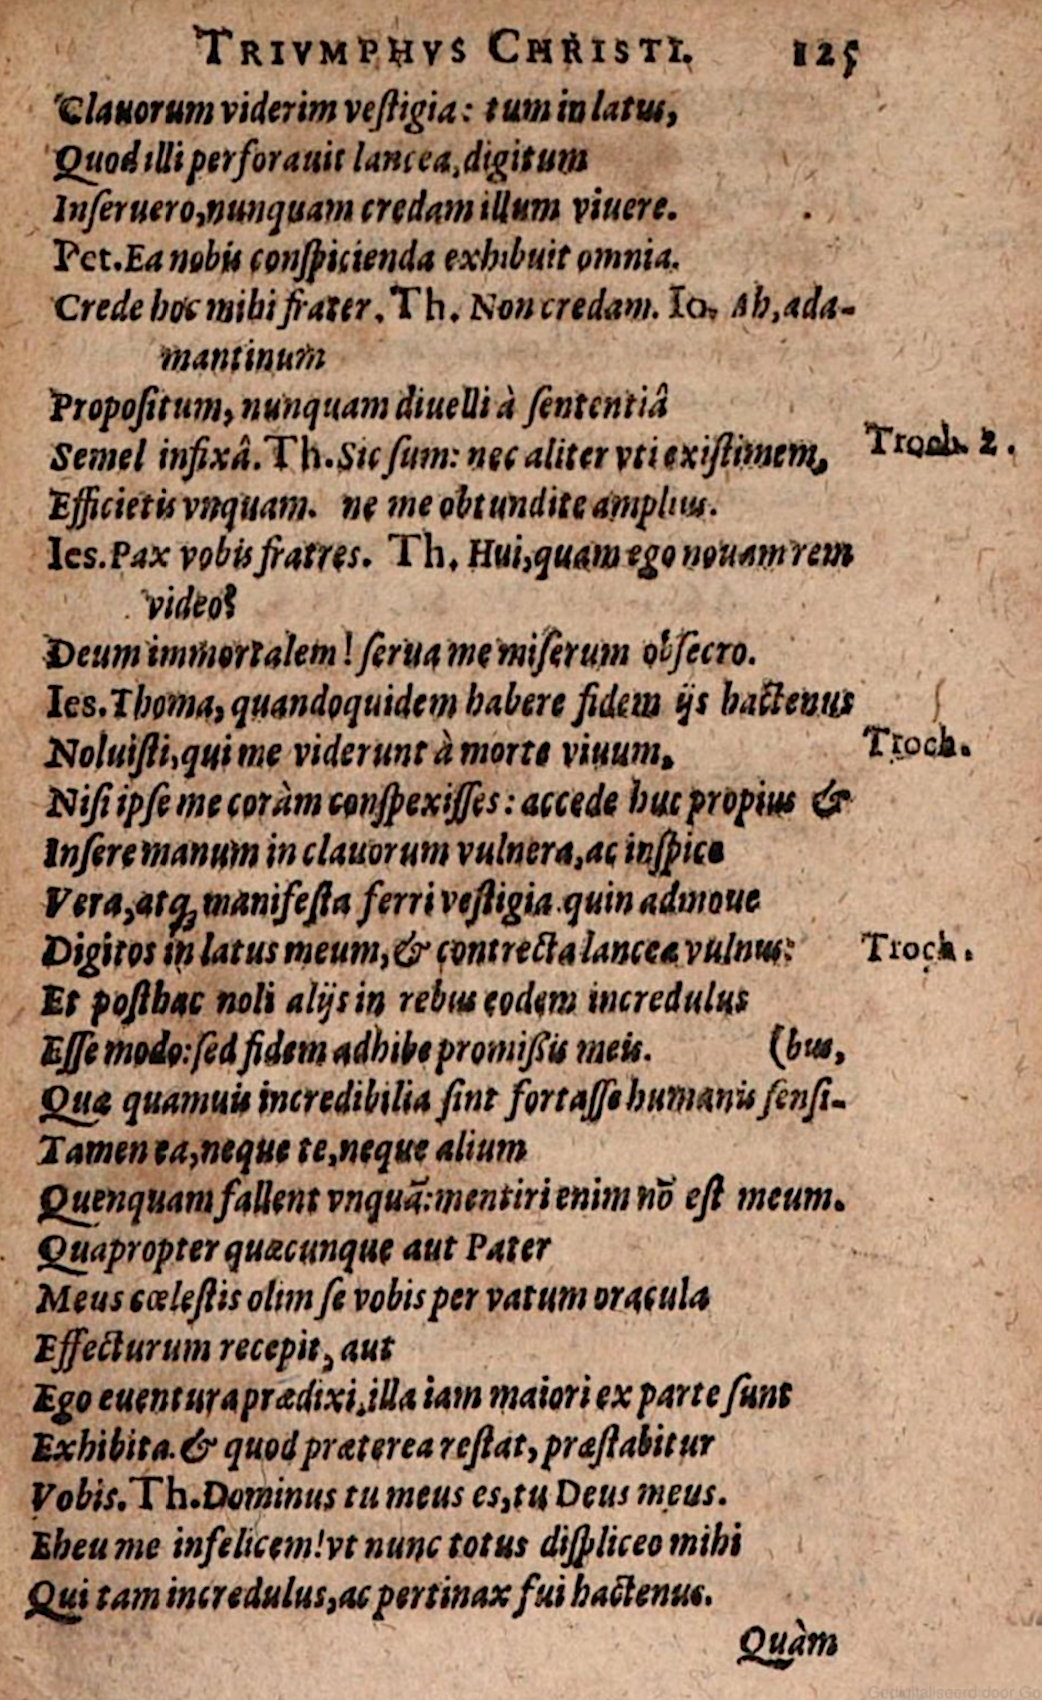 TRIVMPHVS CHRISTI. 125
Clauorum viderim veſtigia: tum in latus,
Quod illi perforauit lancea, digitum
Inſeruero, nunquam credam illum viuere.
Pet. Ea nobis conſpicienda exhibuit omnia.
Crede hoc mihi frater. Th. Non credam. Io. Ah, ada-
mantinum
Propoſitum, nunquam diuelli à ſententiâ
Semel infixâ. Th. Sic ſum: nec aliter vti exiſtimem, Troch. 2.
Efficietis vnquam. ne me obtundite amplius.
Ies. Pax vobis fratres. Th. Hui, quam ego nouam rem
video?
Deum immortalem! ſerua me miſerum obſecro.
Ies. Thoma, quandoquidem habere fidem ijs hactenus
Noluiſti, qui me viderunt à morte viuum, Troch.
Niſi ipſe me coràm conſpexiſſes: accede huc propius &
Inſere manum in clauorum vulnera, ac inſpice
Vera, atq; manifeſta ferri veſtigia. quin admoue
Digitos in latus meum, & contrecta lanceæ vulnus: Troch.
Et poſthac noli alijs in rebus eodem incredulus
Eſſe modo: ſed fidem adhibe promiſsis meis. (bus,
Quæ quamuis incredibilia ſint fortaſſe humanis ſenſi-
Tamen ea, neque te, neque alium
Quenquam fallent vnquã: mentiri enim nō eſt meum.
Quapropter quæcunque aut Pater
Meus cœleſtis olim ſe vobis per vatum oracula
Effecturum recepit, aut
Ego euentura prædixi, illa iam maiori ex parte ſunt
Exhibita. & quod præterea reſtat, præſtabitur
Vobis. Th. Dominus tu meus es, tu Deus meus.
Eheu me infelicem! vt nunc totus diſpliceo mihi
Qui tam incredulus, ac pertinax fui hactenus.
Quàm